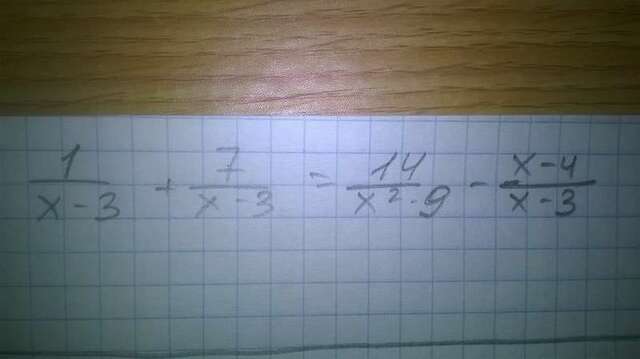 1/(x-3) + 7/(x-3) = 14/(x²-9) - (x-4)/(x-3)